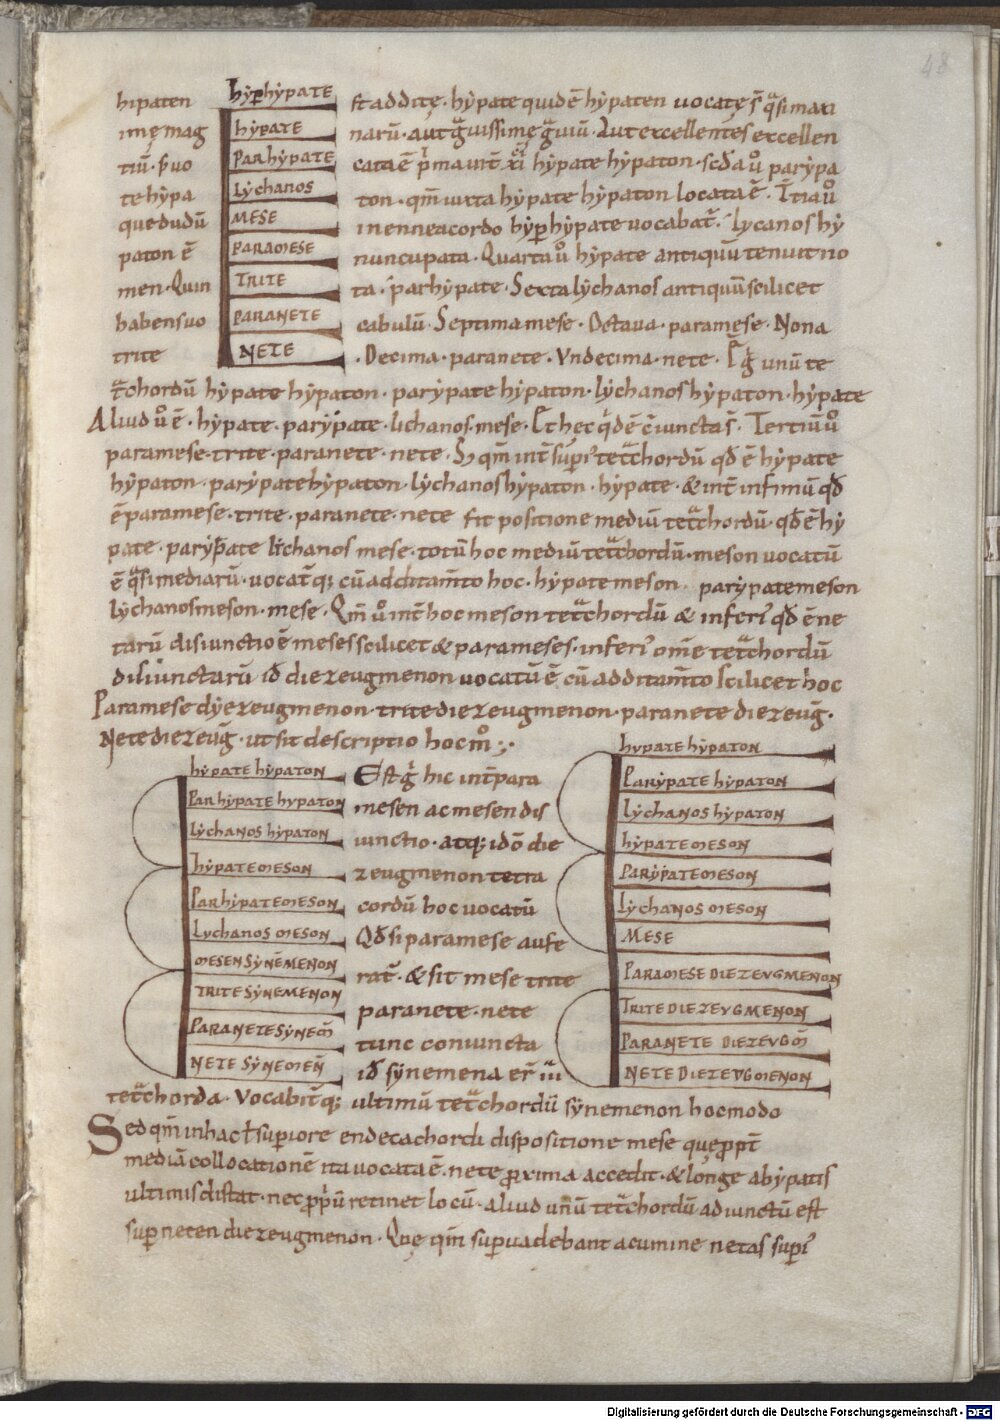 48
hyphypate
hipaten
imę mag
tiū · ꝑ uo
te hypa
que dudū
paton ē
men · Quin
habens uo
trite
hypate
Parhypate
Lychanos
Mese
Paramese
Trite
Paranete
Nete
st additę · hypate quidē hypaten uocatę s̄ qͣsi maxi
narū · aut gͣuissimę gͣuiū · Aut excellentes excellen
cata ē
hypate hypaton · scd̄a uͦ parypa
ton · qm̄ iuxta hypate hypaton locata ē · Tͥtia uͦ
in enneacordo hyphypate uocabat̄ · lycanos hy
nuncupata · Quarta uͦ hypate antiquū tenuit no
ta · parhypate · Sexta lychanos antiquū scilicet
cabulū · Septima mese · Octaua · paramese · Nona
· Decima · paranete · Vndecima · nete · Ē gͥ unū te
tͣchordū hypate hypaton · parypate hypaton · lychanos hypaton · hypate
Aliud uͦ ē · hypate · parypate · lichanos · mese · Et hec qͥdē c̄iunctas̄ · Tertiū uͦ
paramese · trite · paranete · nete · S; qm̄ int̄ supiͥ tetͣchordū qd̄ ē hypate
hypaton · parypate hypaton · lychanos hypaton · hypate · & int̄ infimū qd̄
ē paramese · trite · paranete · nete fit positione mediū tetͣchordū · qd̄ ē hy
pate · parypate lichanos mese · totū hoc mediū tetͣchordū · meson uocatū
ē qͣsi mediarū · uocat̄q; cū additam̄to hoc · hypate meson · parypate meson
lychanos meson · mese · Qm̄ uͦ int̄ hoc meson tetͣchordū & inferiͥ qd̄ ē ne
tarū disiunctio ē meses scilicet & parameses · inferiͥ om̄e tetͣchordū
disiunctarū id̄ diezeugmenon uocatū ē cū additam̄to scilicet hoc
Paramese dyezeugmenon · trite diezeugmenon · paranete diezeug̃ ·
Nete diezeug̃ · ut sit descriptio hoc mͦ
hypate hypaton
Parhypate hypaton
Lychanos hypaton
hypate meson
Parhypate meson
Lychanos meson
mesen synēmenon
Trite synemenon
Paranete synem̄
Nete synemen̄
Est gͥ hic int̄ para
mesen ac mesen dis
iunctio · atq; idō die
zeugmenon tetra
cordū hoc uocatū
Qd̄ si paramese aufe
rat̄ · & sit mese trite
paranete · nete
tunc coniuncta
id̄ synemena er̄ iii
hypate hypaton
Parypate hypaton
Lychanos hypaton
hypate meson
Parypate meson
Lychanos meson
Mese
Paramese diezeugmenon
Trite diezeugmenon
Paranete diezeugm̄
Nete diezeugmenon
tetͣchorda · Vocabit̄q; ultimū tetͣchordū synemenon hocmodo
Sed qm̄ in hac ł superiore endecachordi dispositione mese quę ꝓpt̄
mediā collocationē ita uocata ē nete proxima accedit · & longe ab ypatis
ultimis distat · nec ꝓpͥū retinet locū · aliud unū tetͣchordū adiunctū est
sup neten diezeugmenon · Quę qm̄ supuadebant acumine netas supiͥ
Digitalisierung gefördert durch die Deutsche Forschungsgemeinschaft - DFG